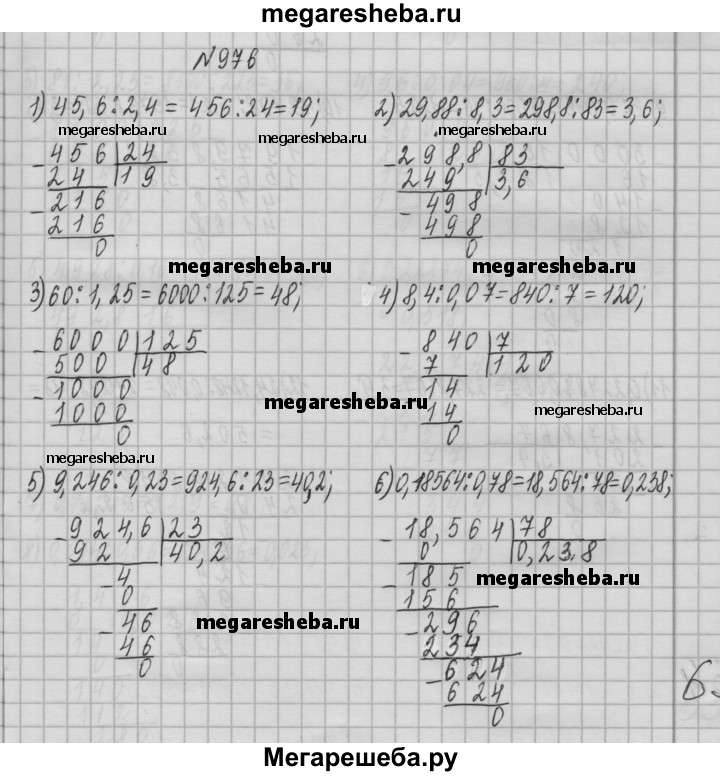 megaresheba.ru
№976
1) 45,6:2,4 = 456:24=19;
2) 29,88:8,3=298,8:83=3,6;
megaresheba.ru
megaresheba.ru
megaresheba.ru
-456 24
24 19
-216
216
0
-298,8 83
249 3,6
-498
498
0
megaresheba.ru
megaresheba.ru
3) 60:1,25=6000:125=48;
4) 8,4:0,07=840:7=120;
-6000 125
500 48
-1000
1000
0
-840 7
7 120
14
14
0
megaresheba.ru
megaresheba.ru
megaresheba.ru
5) 9,246:0,23=924,6:23=40,2;
6) 0,18564:0,78=18,564:78=0,238;
-924,6 23
92 40,2
-4
0
-46
46
0
-18,564 78
0 0,238
-185
156
-296
234
-624
624
0
megaresheba.ru
megaresheba.ru
Мегарешеба.ру